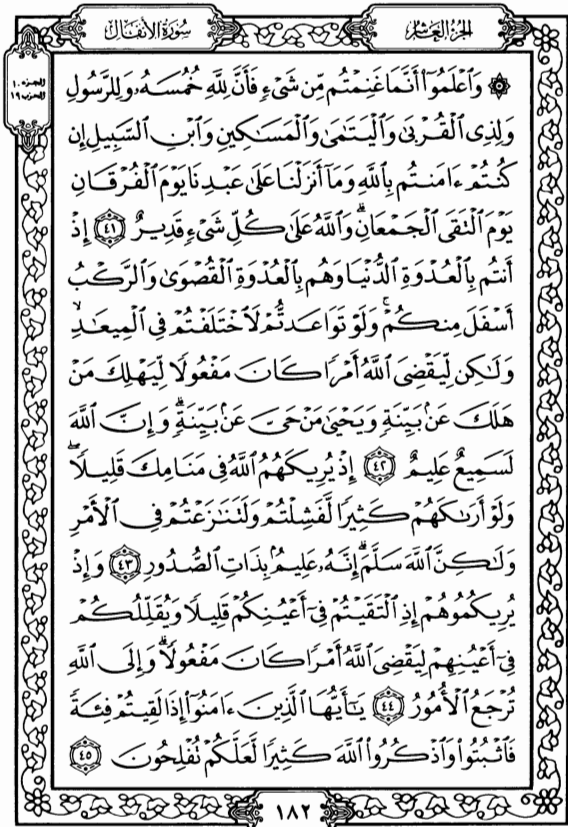 الجزء العاشر
سورة الأنفال
الجزء ١٠
الحزب ١٩
۞ وَٱعۡلَمُوٓاْ أَنَّمَا غَنِمۡتُم مِّن شَيۡءٖ فَأَنَّ لِلَّهِ خُمُسَهُۥ وَلِلرَّسُولِ
وَلِذِي ٱلۡقُرۡبَىٰ وَٱلۡيَتَٰمَىٰ وَٱلۡمَسَٰكِينِ وَٱبۡنِ ٱلسَّبِيلِ إِن
كُنتُمۡ ءَامَنتُم بِٱللَّهِ وَمَآ أَنزَلۡنَا عَلَىٰ عَبۡدِنَا يَوۡمَ ٱلۡفُرۡقَانِ
يَوۡمَ ٱلۡتَقَى ٱلۡجَمۡعَانِۗ وَٱللَّهُ عَلَىٰ كُلِّ شَيۡءٖ قَدِيرٌ ٤١ إِذۡ
أَنتُم بِٱلۡعُدۡوَةِ ٱلدُّنۡيَا وَهُم بِٱلۡعُدۡوَةِ ٱلۡقُصۡوَىٰ وَٱلرَّكۡبُ
أَسۡفَلَ مِنكُمۡۚ وَلَوۡ تَوَاعَدتُّمۡ لَٱخۡتَلَفۡتُمۡ فِي ٱلۡمِيعَٰدِ وَ
وَلَٰكِن لِّيَقۡضِيَ ٱللَّهُ أَمۡرٗا كَانَ مَفۡعُولٗا لِّيَهۡلِكَ مَنۡ
هَلَكَ عَنۢ بَيِّنَةٖ وَيَحۡيَىٰ مَنۡ حَيَّ عَنۢ بَيِّنَةٖۗ وَإِنَّ ٱللَّهَ
لَسَمِيعٌ عَلِيمٌ ٤٢ إِذۡ يُرِيكَهُمُ ٱللَّهُ فِي مَنَامِكَ قَلِيلٗاۖ
وَلَوۡ أَرَىٰكَهُمۡ كَثِيرٗا لَّفَشِلۡتُمۡ وَلَتَنَٰزَعۡتُمۡ فِي ٱلۡأَمۡرِ
وَلَٰكِنَّ ٱللَّهَ سَلَّمَۗ إِنَّهُۥ عَلِيمُۢ بِذَاتِ ٱلصُّدُورِ ٤٣ وَإِذۡ
يُرِيكُمُوهُمۡ إِذِ ٱلۡتَقَيۡتُمۡ فِيٓ أَعۡيُنِكُمۡ قَلِيلٗا وَيُقَلِّلُكُمۡ
فِيٓ أَعۡيُنِهِمۡ لِيَقۡضِيَ ٱللَّهُ أَمۡرٗا كَانَ مَفۡعُولٗاۗ وَإِلَى ٱللَّهِ
تُرۡجَعُ ٱلۡأُمُورُ ٤٤ يَٰٓأَيُّهَا ٱلَّذِينَ ءَامَنُوٓاْ إِذَا لَقِيتُمۡ فِئَةٗ
فَٱثۡبُتُواْ وَٱذۡكُرُواْ ٱللَّهَ كَثِيرٗا لَّعَلَّكُمۡ تُفۡلِحُونَ ٤٥
١٨٢